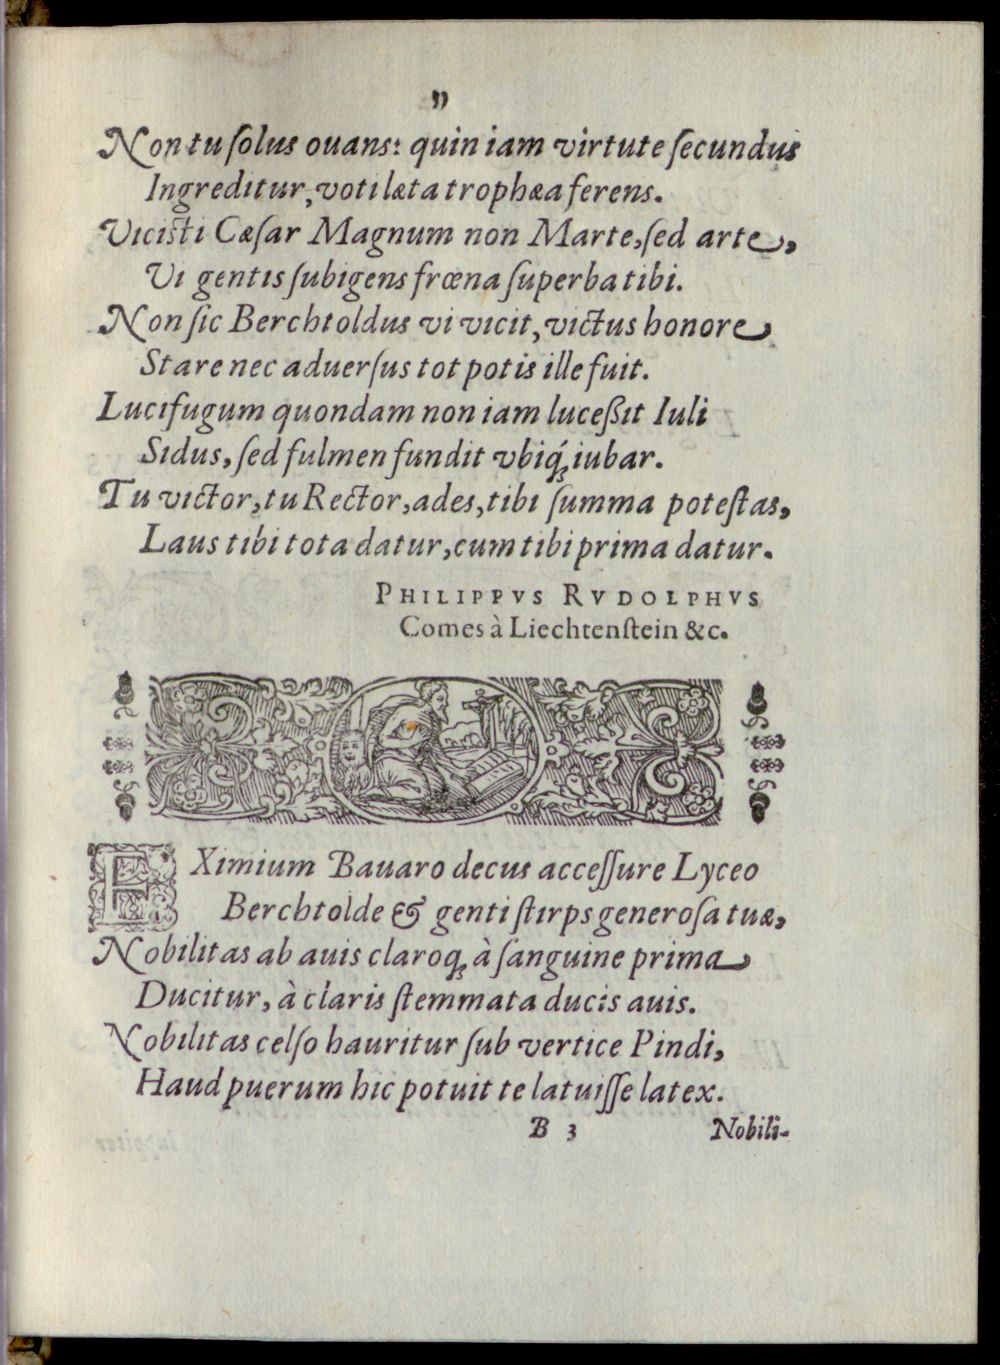 Non tu ſolus ovans: quin iam virtute ſecundus
Ingreditur, voti læta trophæa ferens.
Viciſti Cæſar Magnum non Marte, ſed arte,
Vi gentis ſubigens frœna ſuperba tibi.
Non ſic Berchtoldus vi vicit, victus honore
Stare nec aduerſus tot potis ille fuit.
Lucifugum quondam non iam luceßit Iuli
Sidus, ſed fulmen fundit vbiq́; iubar.
Tu victor, tu Rector, ades, tibi ſumma poteſtas,
Laus tibi tota datur, cum tibi prima datur.
PHILIPPVS RVDOLPHVS
Comes à Liechtenſtein &c.
EXimium Bavaro decus acceſſure Lyceo
Berchtolde & genti ſtirps generoſa tuæ,
Nobilitas ab auis claroq; à ſanguine prima
Ducitur, à claris ſtemmata ducis avis.
Nobilitas celſo hauritur ſub vertice Pindi,
Haud puerum hic potuit te latuiſſe latex.
B 3 Nobili-